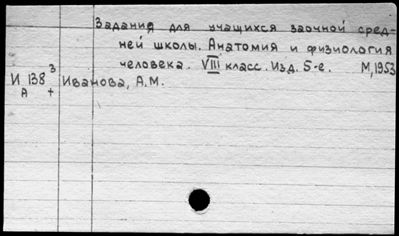 Задания для учащихся заочной сред-
ней школы. Анатомия и физиология
человека. VIII класс. Изд. 5-е. М, 1953
И 138 3
А +
Иванова, А.М.